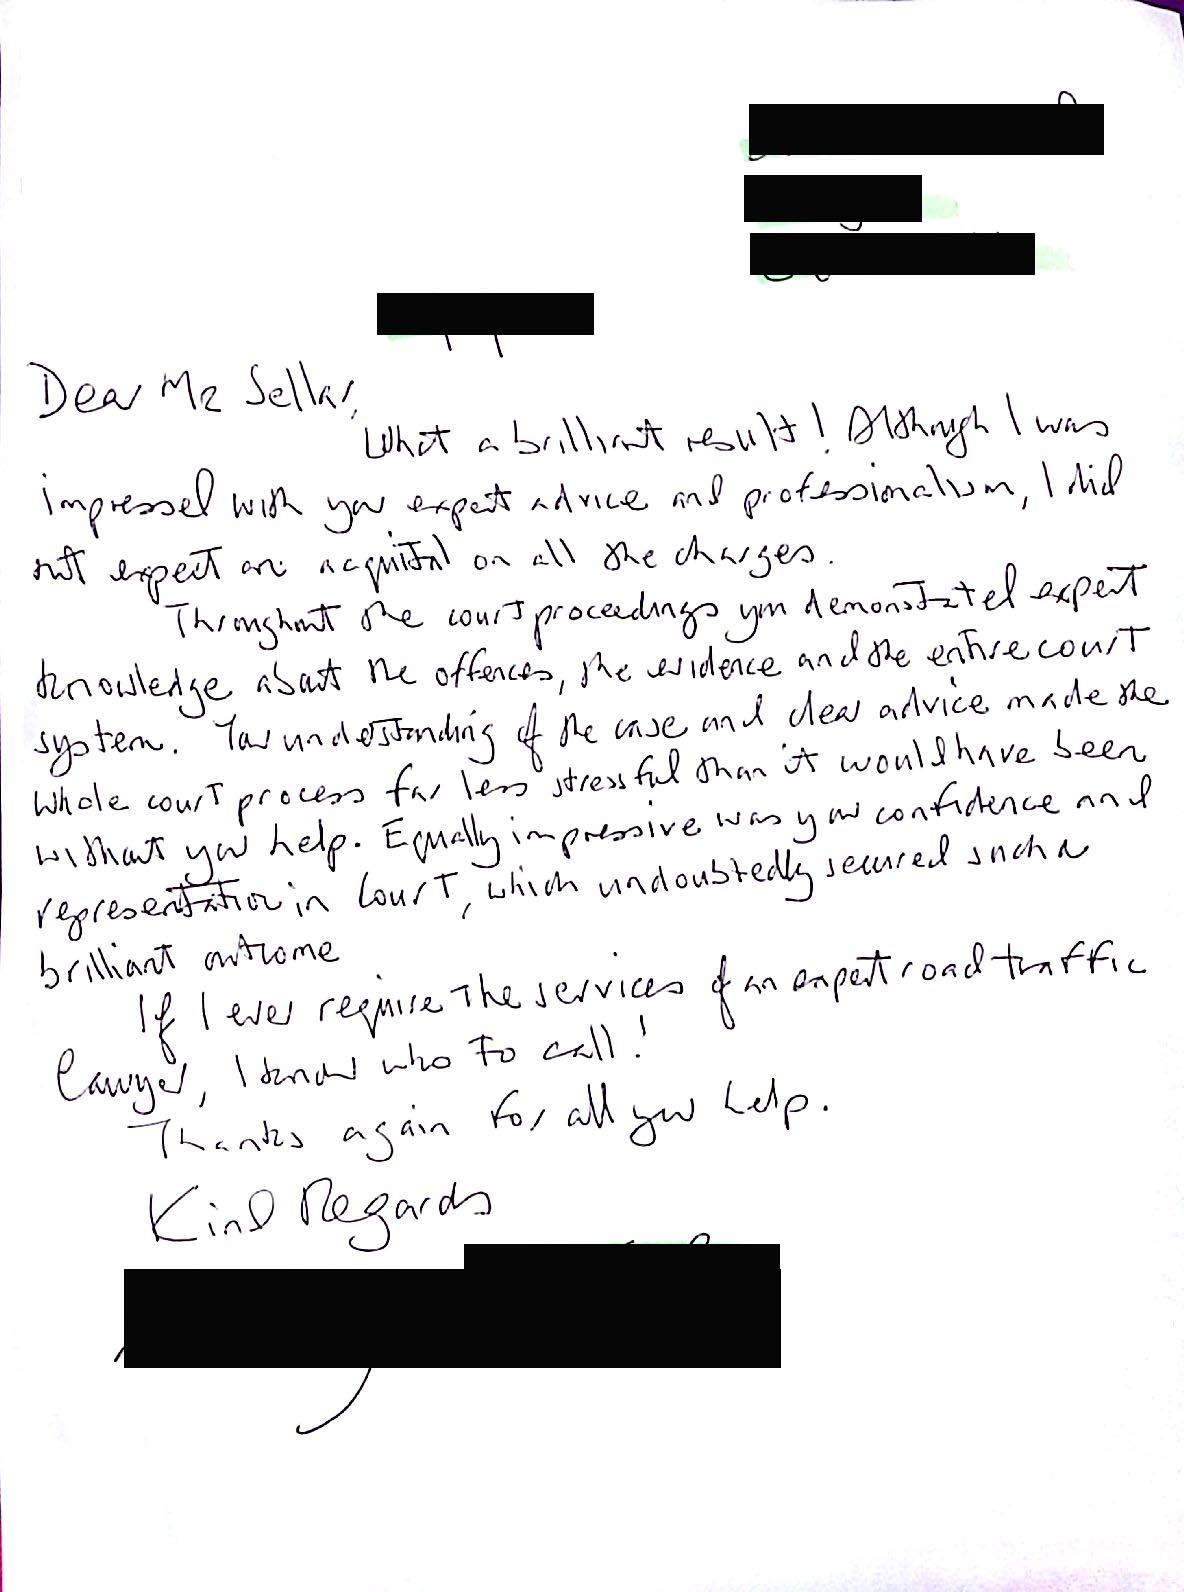 Dear Mr Sellar,
What a brilliant result! Although I was
impressed with your expert advice and professionalism, I did
not expect an acquital on all the charges.
Throughout the court proceedings you demonstrated expert
knowledge about the offences, the evidence and the entire court
system. Your understanding of the case and clear advice made the
whole court process far less stressful than it would have been
without your help. Equally impressive was your confidence and
representation in Court, which undoubtedly secured such a
brilliant outcome
If I ever require the services of an expert road traffic
lawyer, I know who to call!
Thanks again for all your help.
Kind Regards